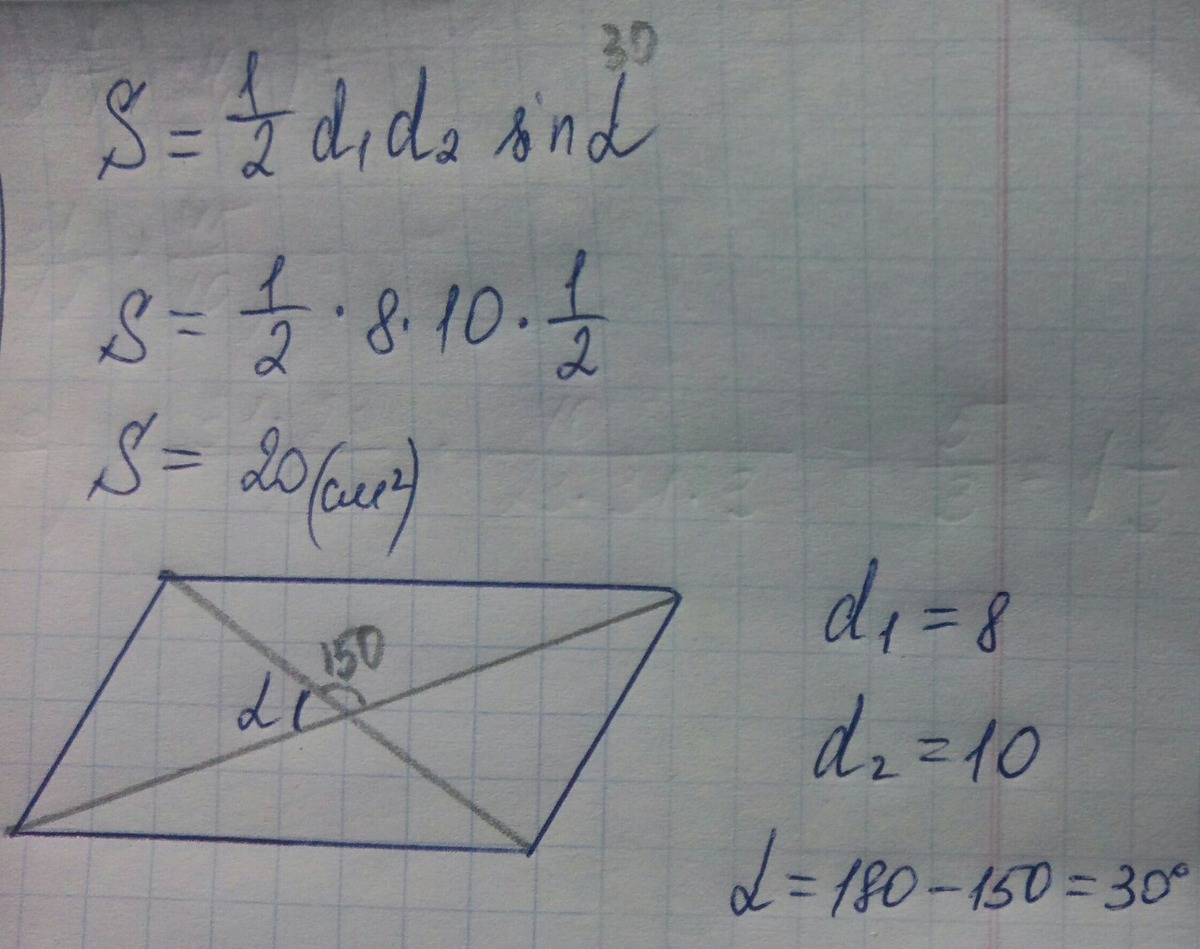 30
S = 1/2 d₁ d₂ sin α
S = 1/2 · 8 · 10 · 1/2
S = 20 (см²)
150
α
d₁ = 8
d₂ = 10
α = 180 - 150 = 30°